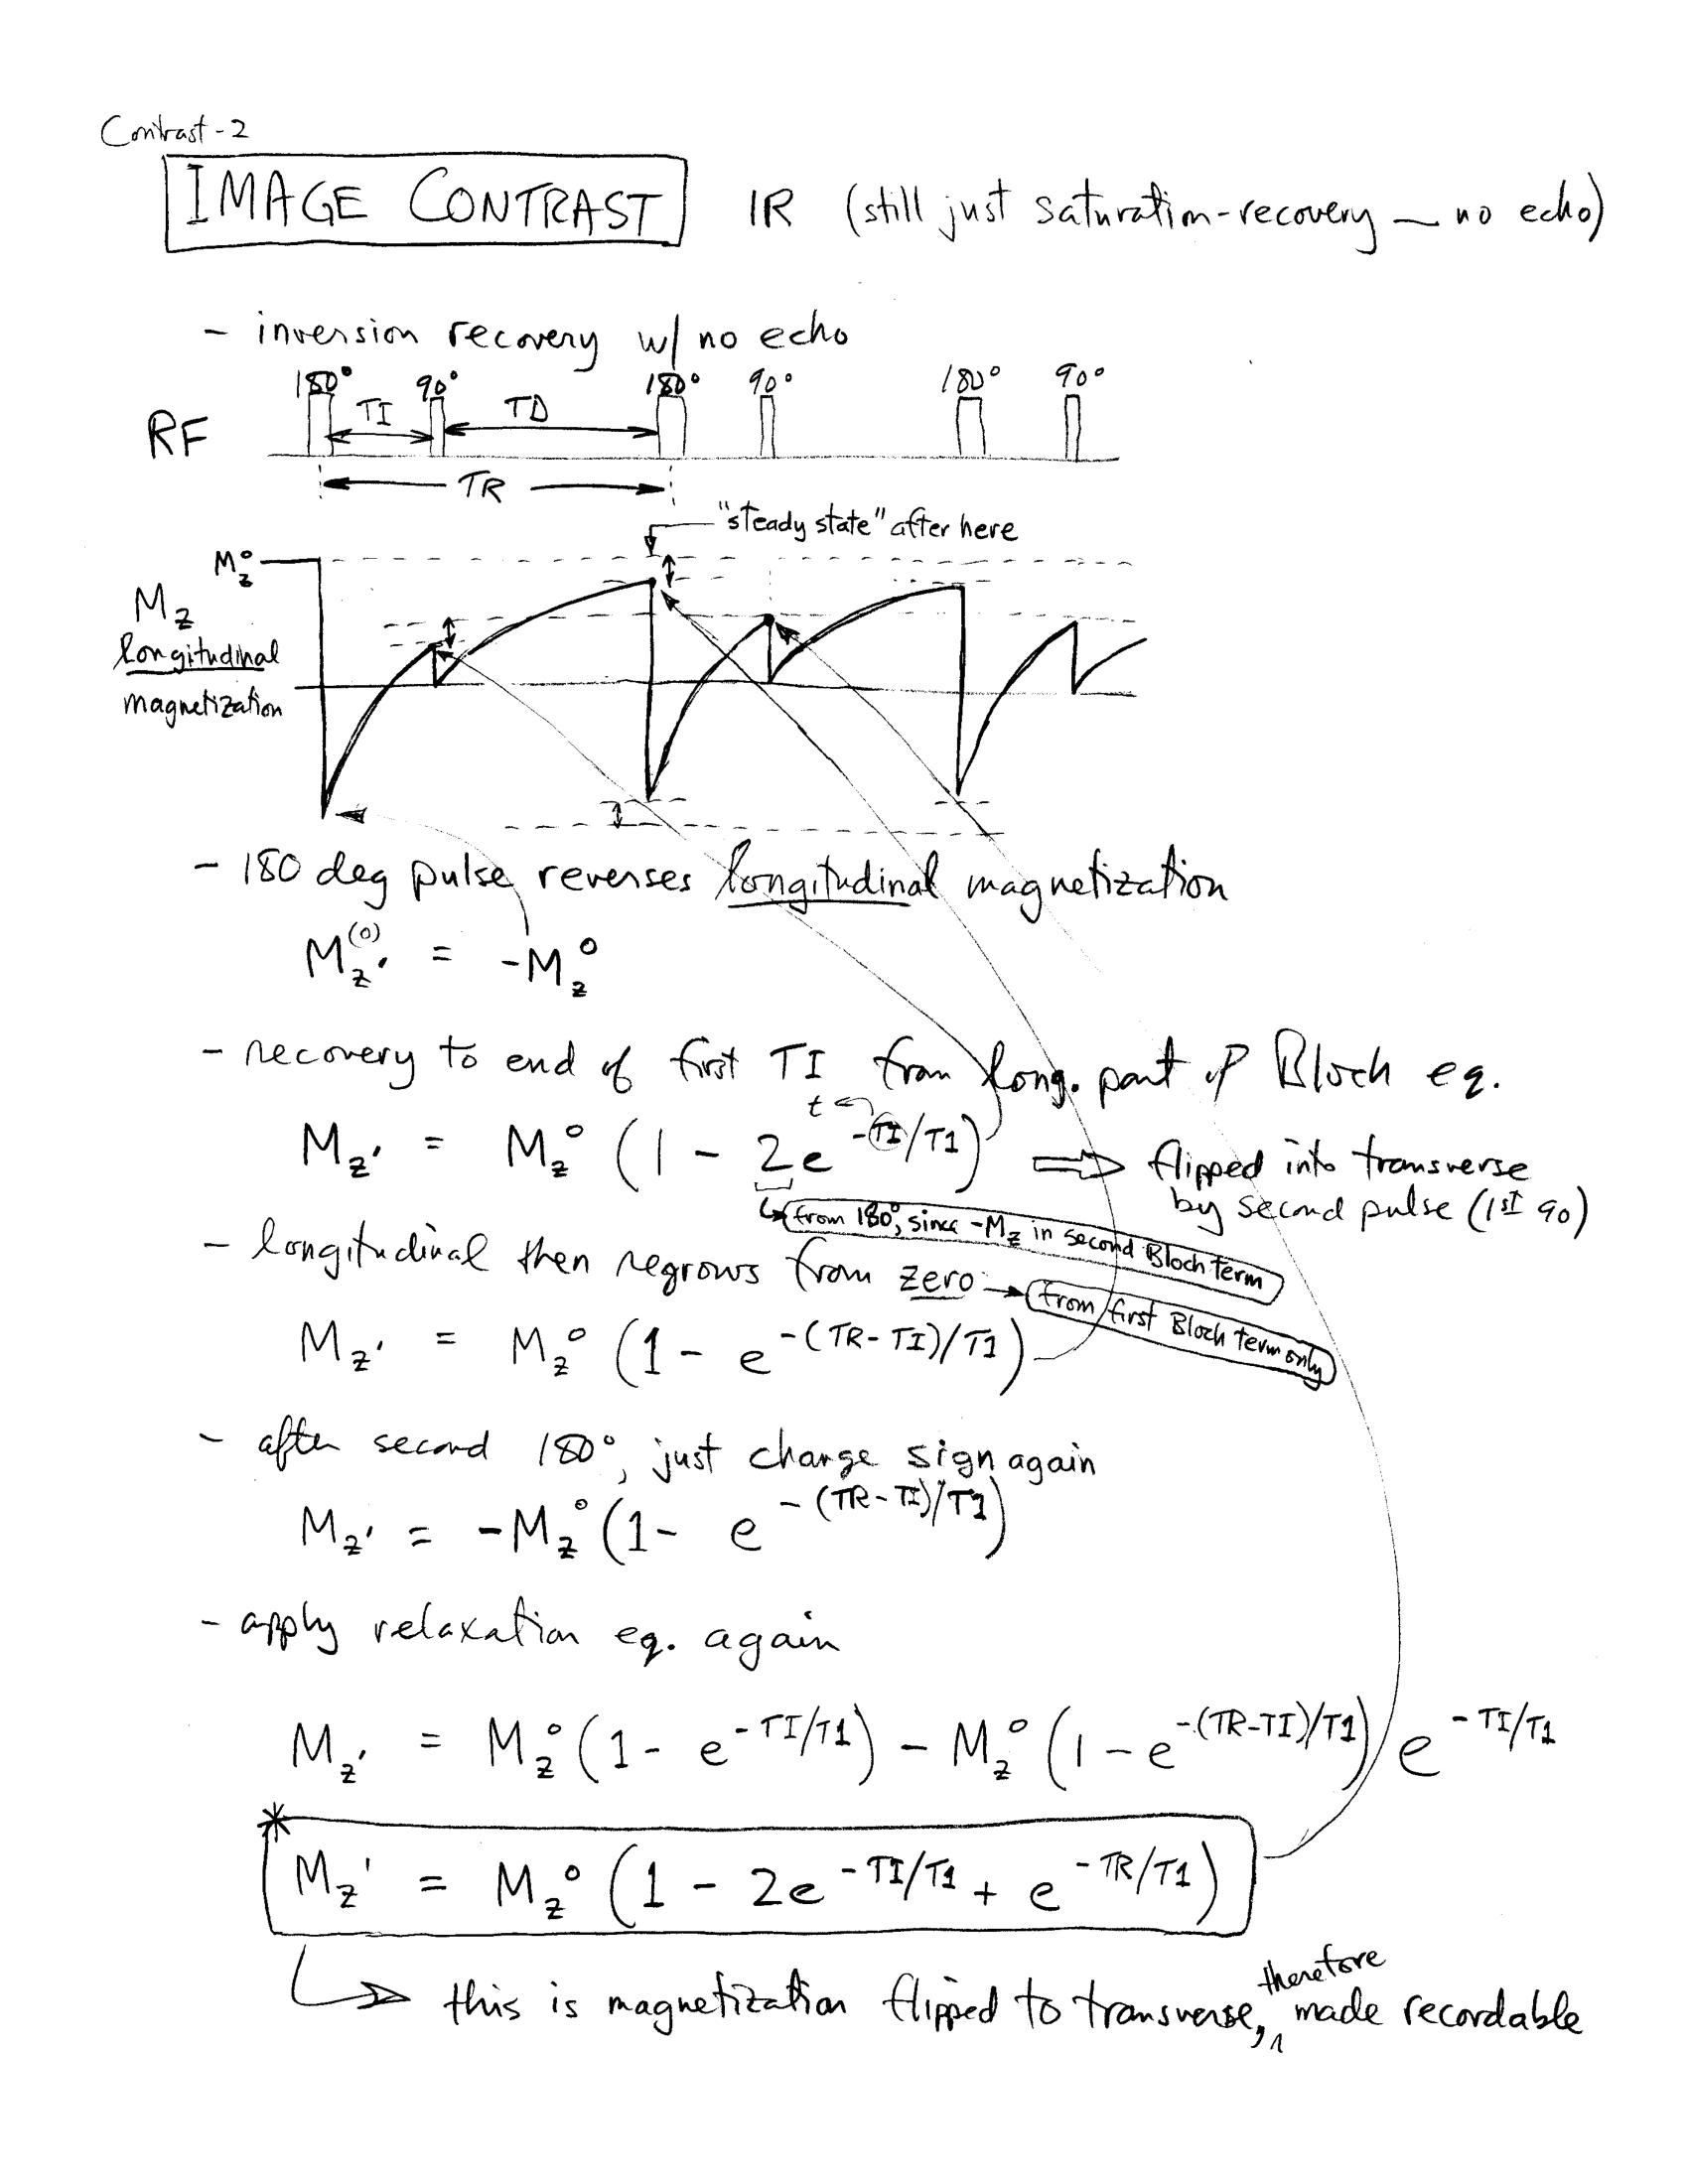 Contrast-2
IMAGE CONTRAST IR (still just saturation-recovery — no echo)
- inversion recovery w/ no echo
180° 90° 180° 90° 180° 90°
RF TI TD
TR
"steady state" after here
M_z°
M_z
longitudinal
magnetization
- 180 deg pulse reverses longitudinal magnetization
M_z'^(0) = -M_z°
- recovery to end of first TI from long. part of Bloch eq.
t
M_z' = M_z° (1 - 2e^(-TI/T1)) ⇒ flipped into transverse
by second pulse (1st 90)
from 180°, since -M_z in second Bloch term
- longitudinal then regrows from zero → from first Bloch term only
M_z' = M_z° (1 - e^(-(TR-TI)/T1))
- after second 180°, just change sign again
M_z' = -M_z° (1 - e^(-(TR-TI)/T1))
- apply relaxation eq. again
M_z' = M_z° (1 - e^(-TI/T1)) - M_z° (1 - e^(-(TR-TI)/T1)) e^(-TI/T1)
* M_z' = M_z° (1 - 2e^(-TI/T1) + e^(-TR/T1))
→ this is magnetization flipped to transverse, therefore made recordable